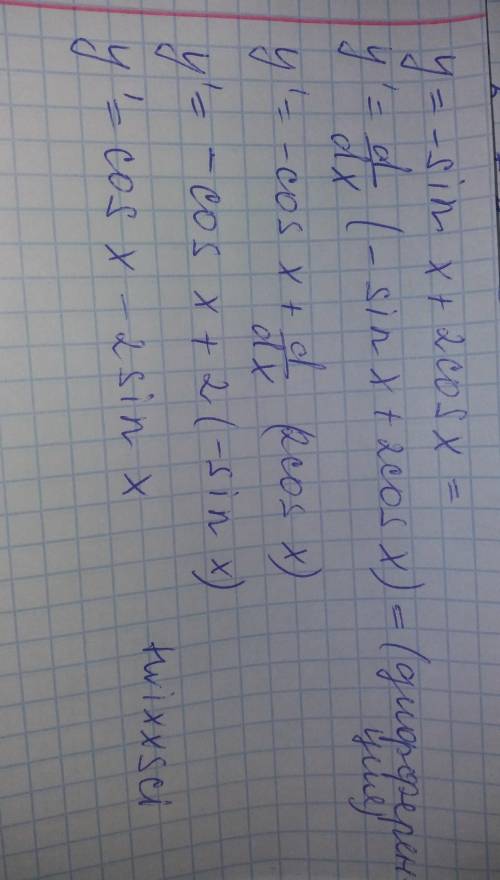 y = -sin x + 2cos x =
y' = d/dx (-sin x + 2cos x) = (дифферен
цируем
y' = -cos x + d/dx (2cos x)
y' = -cos x + 2(-sin x)
y' = cos x - 2sin x
hwixxsci